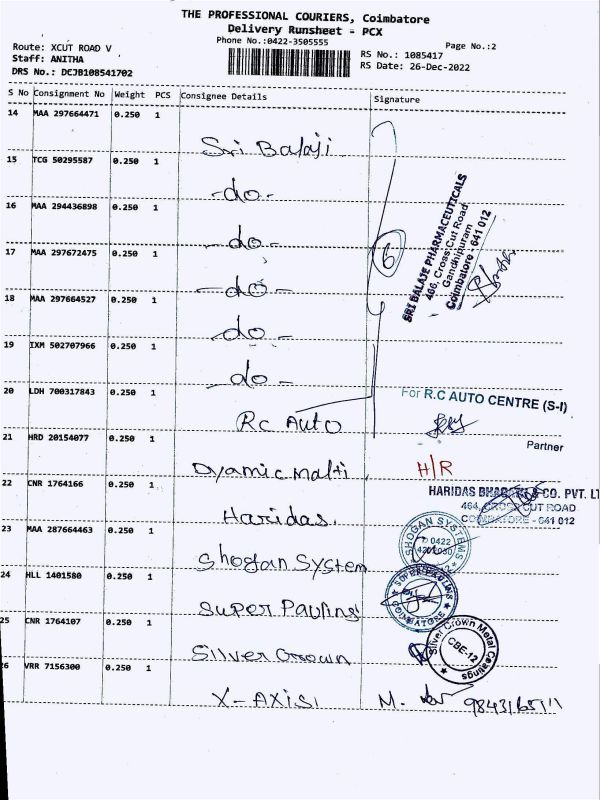 THE PROFESSIONAL COURIERS, Coimbatore
Delivery Runsheet - PCX
Phone No.:0422-3505555
Page No.:2
Route: XCUT ROAD V
Staff: ANITHA
DRS No.: DCJB108541702
RS No.: 1085417
RS Date: 26-Dec-2022
S No Consignment No Weight PCS Consignee Details Signature
14 MAA 297664471 0.250 1
Sri Balaji
15 TCG 50295587 0.250 1
-do-
16 MAA 294436898 0.250 1
-do-
17 MAA 297672475 0.250 1
-do-
18 MAA 297664527 0.250 1
-do-
19 IXM 502707966 0.250 1
-do-
6
SRI BALAJE PHARMACEUTICALS
466, Cross Cut Road
Gandhipuram
Coimbatore - 641 012
20 LDH 700317843 0.250 1
Rc Auto
For R.C AUTO CENTRE (S-I)
Partner
21 HRD 20154077 0.250 1
Dyamic malti H/R
22 CNR 1764166 0.250 1
Haridas
HARIDAS & CO. PVT. LT
464, CROSS CUT ROAD
COIMBATORE - 641 012
23 MAA 287664463 0.250 1
Shogan System
SHOGAN SYSTEMS
0422
24 HLL 1401580 0.250 1
Super Pauling
COIMBATORE
25 CNR 1764107 0.250 1
Sillver Crown
Silver Crown Metal Coatings
CBE-12
26 VRR 7156300 0.250 1
X-AXIS M.